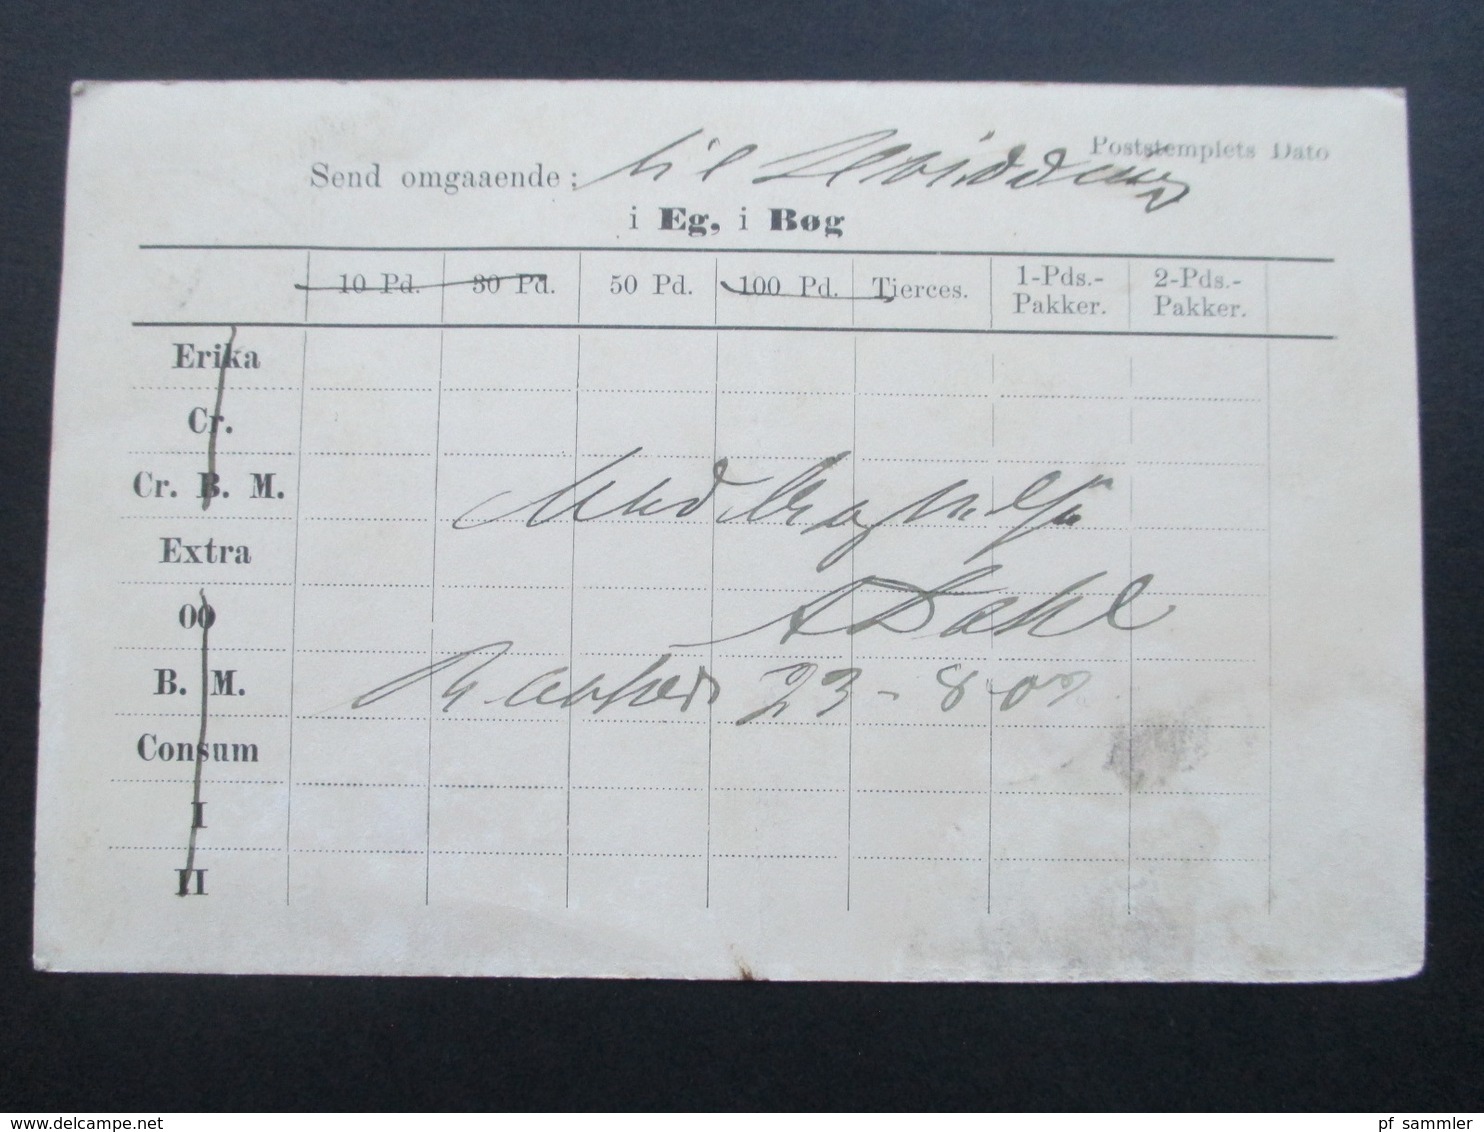 Poststemplets Dato
Send omgaaende ; til
i Eg, i Bøg
10 Pd. 30 Pd. 50 Pd. 100 Pd. Tierces. 1-Pds.- Pakker. 2-Pds.- Pakker.
Erika
Cr.
Cr. B. M.
Extra
00
B. M.
Consum
I
II
A Dahl
23-8-07
pf_sammler